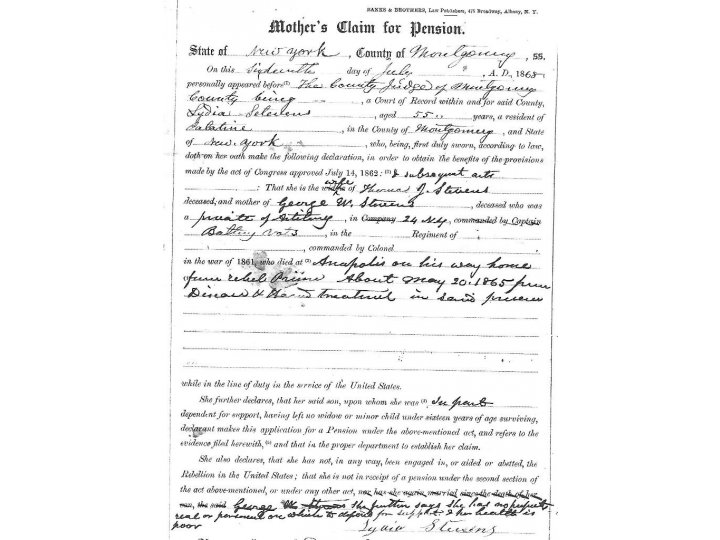 BANKS & BROTHERS, Law Publishers, 475 Broadway, Albany, N. Y.
Mother's Claim for Pension.
State of New York, County of Montgomery, SS.
On this Sixteenth day of July, A. D., 1865
personally appeared before (1) The County Judge of Montgomery
County being, a Court of Record within and for said County,
Lydia Stevens, aged 55 years, a resident of
Palatine, in the County of Montgomery, and State
of New York, who, being, first duly sworn, according to law,
doth on her oath make the following declaration, in order to obtain the benefits of the provisions
made by the act of Congress approved July 14, 1862: (2) & subsequent acts
: That she is the wife of Thomas J. Stevens
deceased, and mother of George W. Stevens, deceased who was
a private of Artillery, in Company 24 N.Y., commanded by Captain
Battery, in the Regiment of
, commanded by Colonel
in the war of 1861, who died at (3) Anapolis on his way home
from rebel Prison About May 20. 1865 from
treatment in said prison
while in the line of duty in the service of the United States.
She further declares, that her said son, upon whom she was (4) In part
dependent for support, having left no widow or minor child under sixteen years of age surviving,
declarant makes this application for a Pension under the above-mentioned act, and refers to the
evidence filed herewith, (5) and that in the proper department to establish her claim.
She also declares, that she has not, in any way, been engaged in, or aided or abetted, the
Rebellion in the United States; that she is not in receipt of a pension under the second section of
the act above-mentioned, or under any other act, nor has she again married since the death of her
son, the said George W. Stevens She further says she has no property
real or personal on which to depend for support & her health is
poor Lydia Stevens